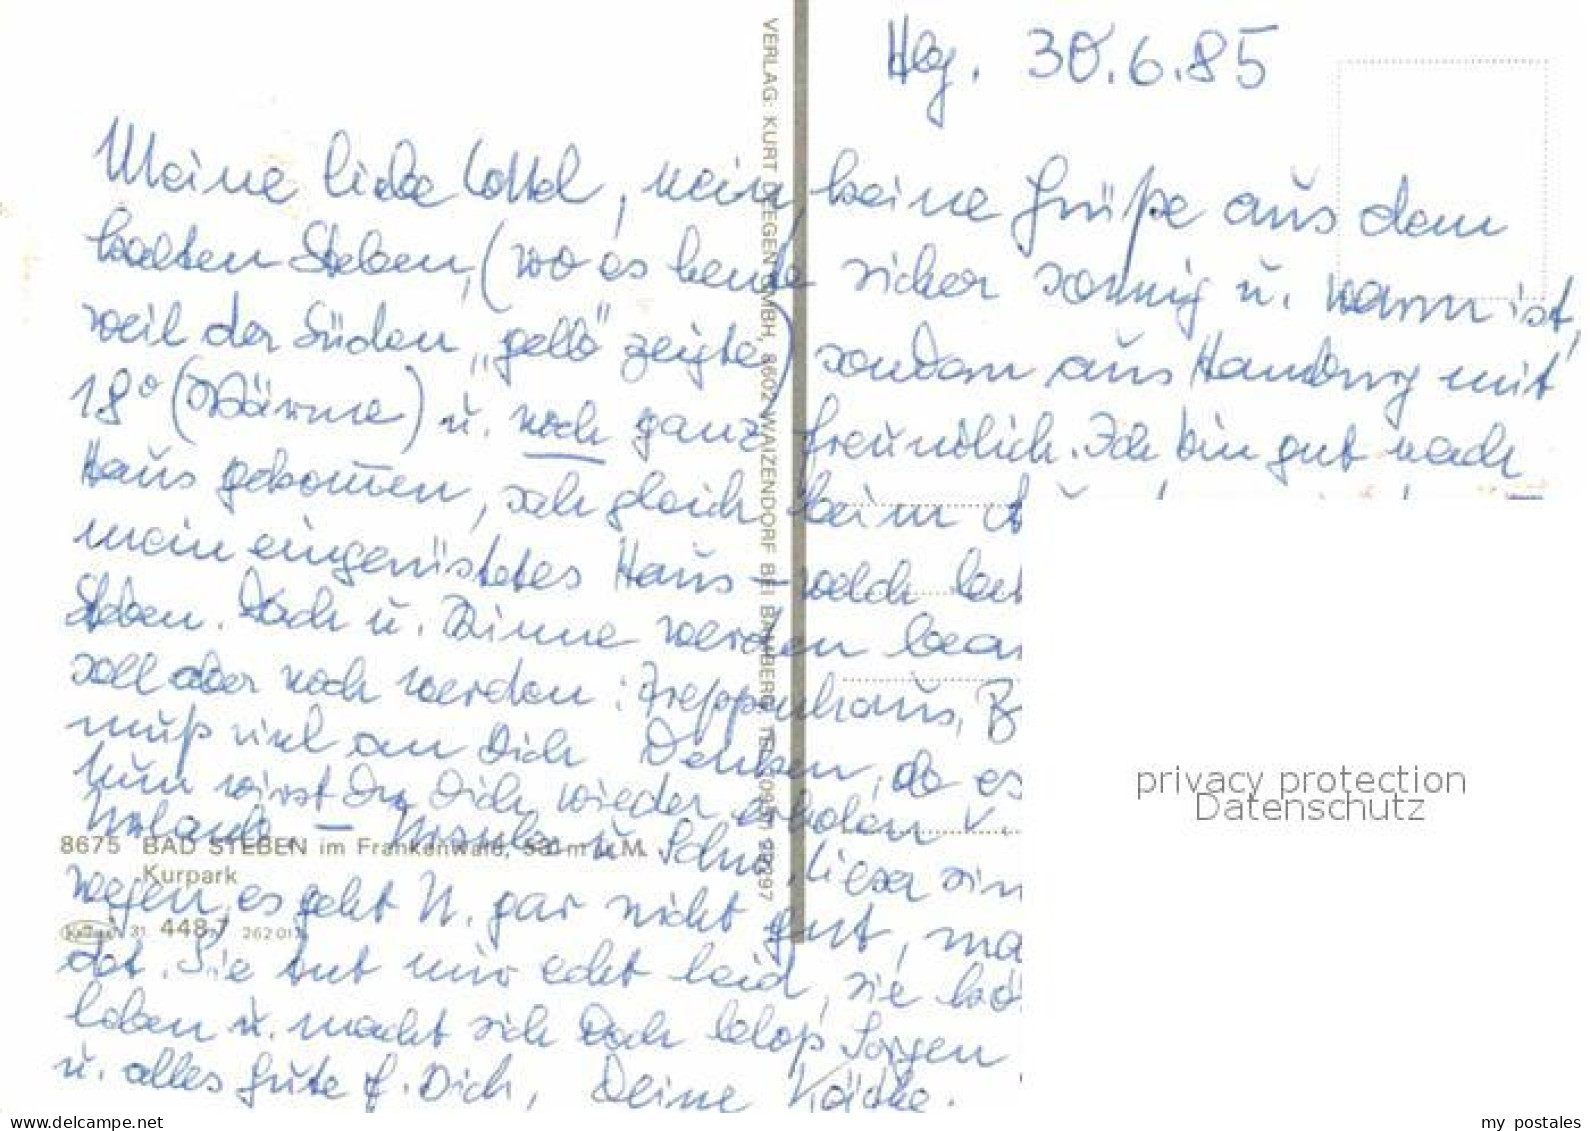 Hbg. 30.6.85
Meine liebe Lottel, nein keine Grüße aus dem
kalten Steben, (wo es heute sicher sonnig u. warm ist,
weil der Süden „gelb" zeigte) sondern aus Hamburg mit
18° (Wärme) u. noch ganz freundlich. Ich bin gut nach
Haus gekommen, sah gleich beim
mein eingerüstetes Haus – welch
Steben. Dach u. Rinne werden
soll aber noch werden: Treppenhaus, B
muß viel an Dich Denken, ob es
nun wirst Du Dich wieder erholen v.
Urlaub. – Ursula u. Sohn, dieser
wegen, es geht U. gar nicht gut, ma
dot. Sie tut mir echt leid, sie kö
leben u. macht sich doch bloß Sorgen
u. alles Gute f. Dich, Deine Käthe.
VERLAG: KURT DEEGEN GMBH, 8602 WAIZENDORF BEI BAMBERG, TEL.
8675 BAD STEBEN im Frankenwald, 581 m ü. M.
Kurpark
31 448,7 262 017
privacy protection
Datenschutz
www.delcampe.net
my_postales